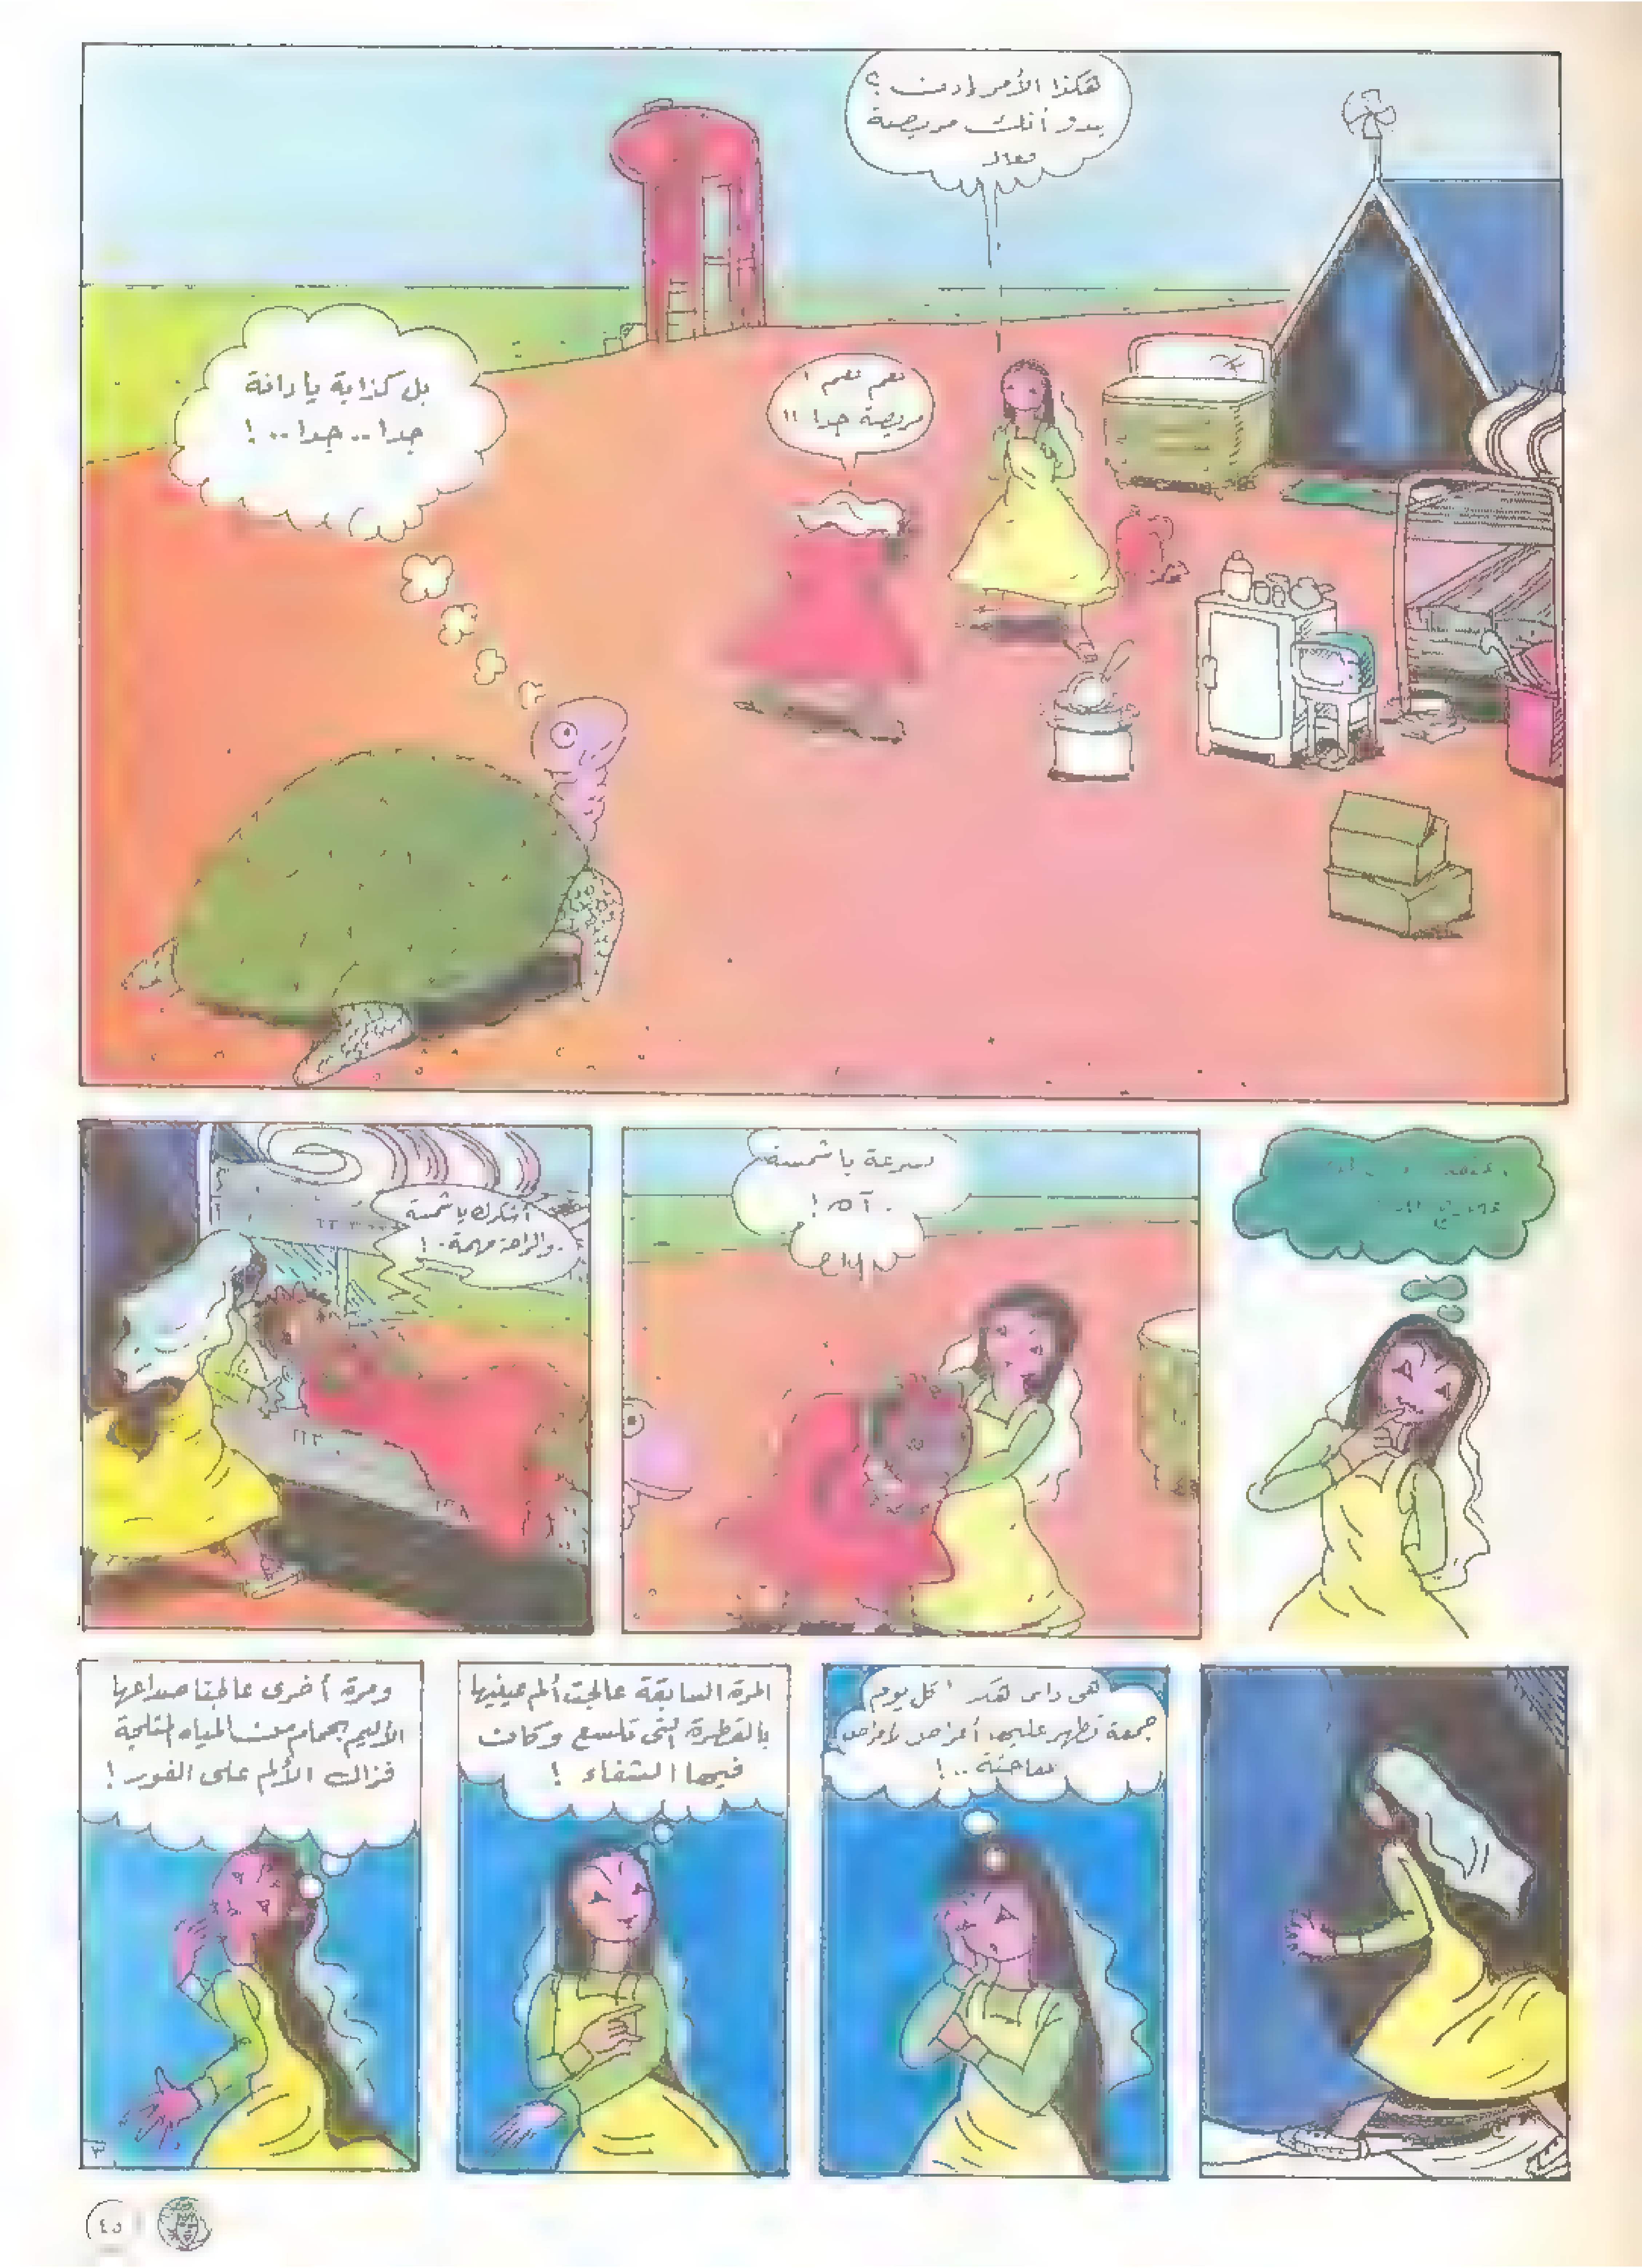 هكذا الأمر إذن ؟
يبدو أنك مريضة
فعلا
نعم نعم !
مريضة جدا !!
بل كذابة يا دانة
جدا .. جدا .. !
بسرعة يا شمسة
آه !
أشكرك يا شمسة
والراحة مهمة . !
هى دائما هكذا ! كل يوم
جمعة تظهر عليها أعراض لأمراض
مفاجئة .. !
المرة السابقة عالجت ألم عينيها
بالقطرة التى تلسع وكان
فيها الشفاء !
ومرة أخرى عالجنا صداعها
الأليم بحمام من المياه المثلجة
فزال الألم على الفور !
٣
٤٥